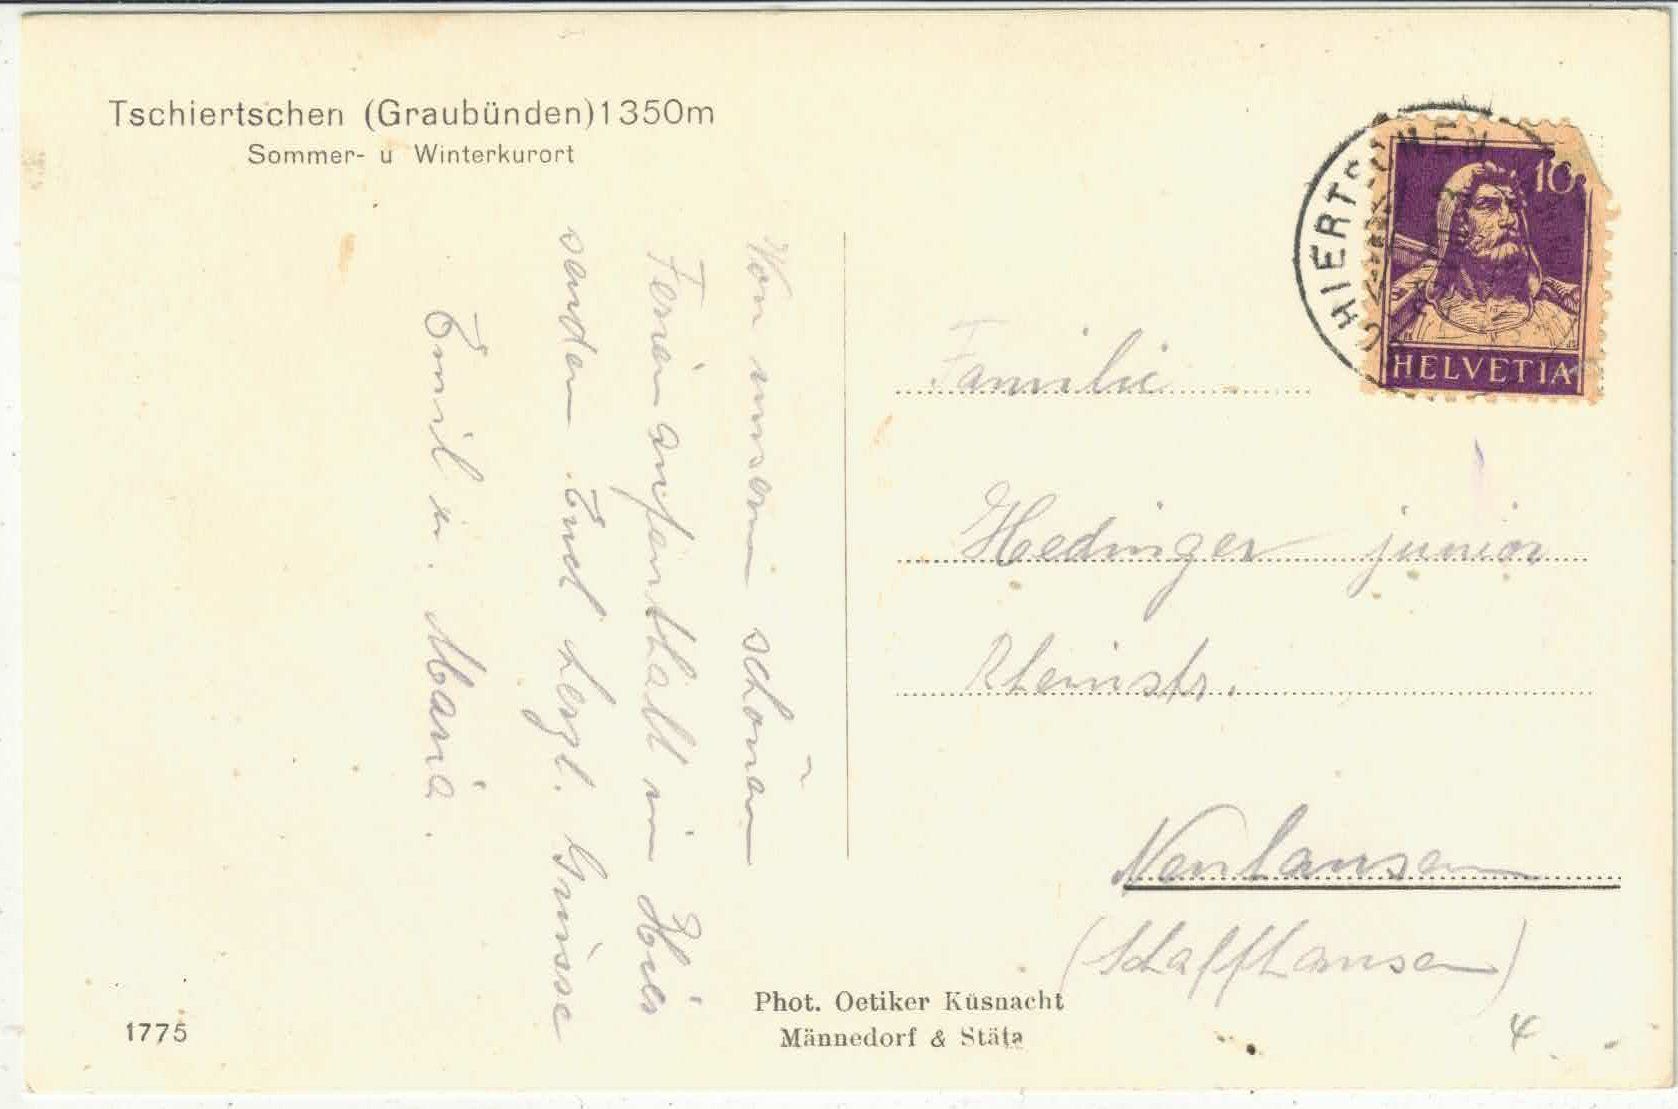 Tschiertschen (Graubünden)1350m
Sommer- u Winterkurort
Von unserem schönen
Ferienaufenthalt im
senden Euch herzl. Grüsse
Emil u. Maria.
TSCHIERTSCHEN
10
HELVETIA
Familie
Hedinger junior
Rheinstr.
Neuhausen
(Schaffhausen)
4
Phot. Oetiker Küsnacht
Männedorf & Stäfa
1775